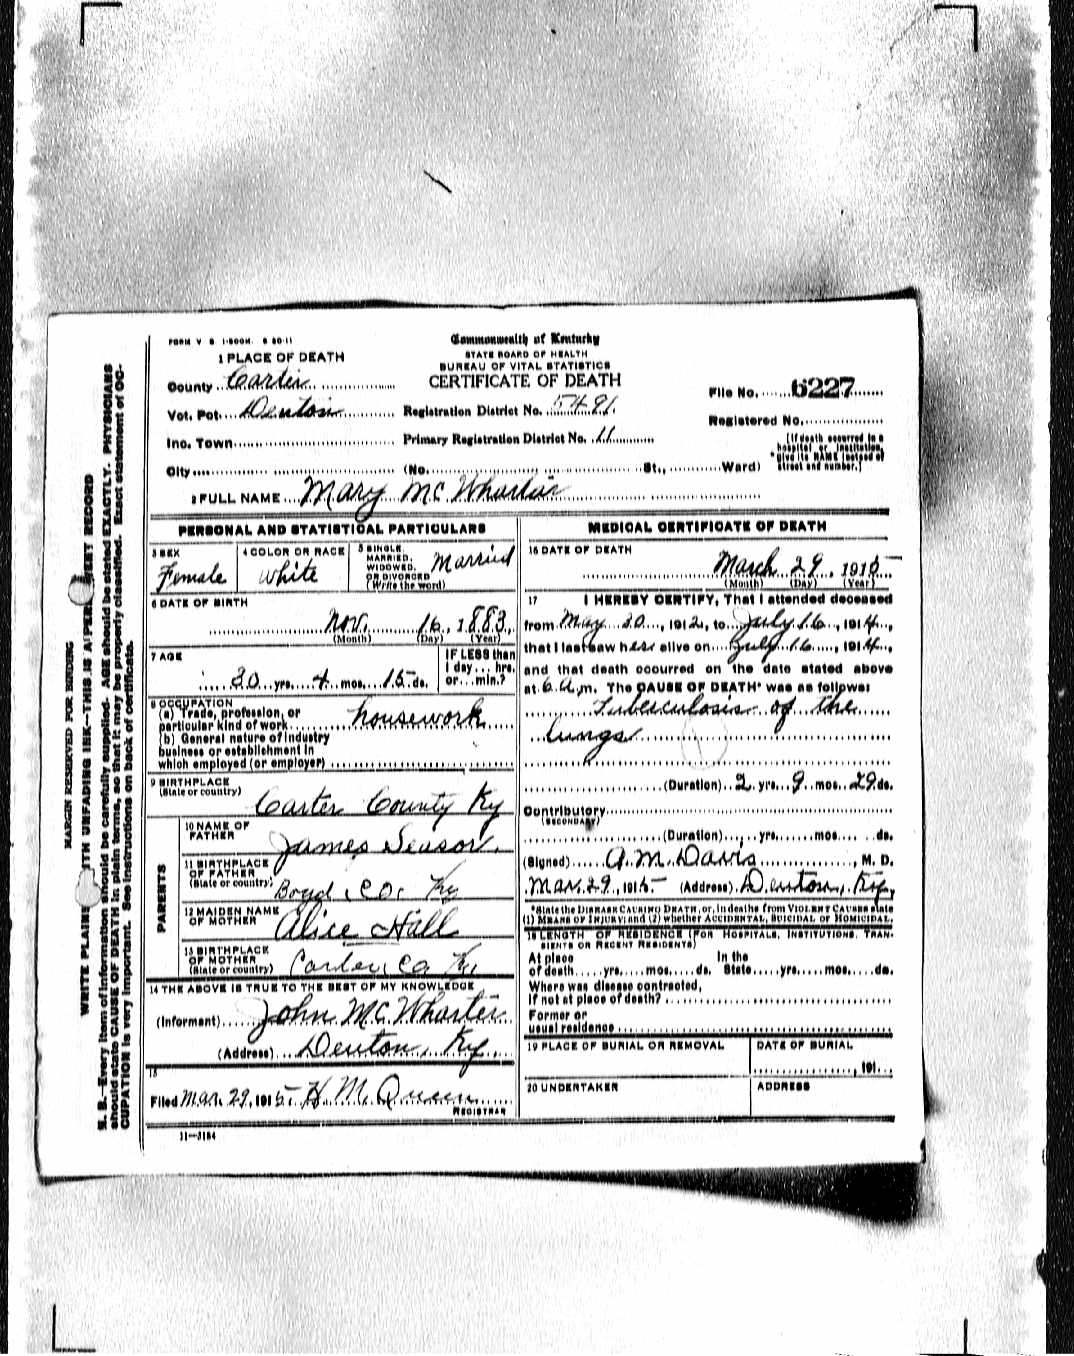 FORM V S 1-500M. 6 20-11
Commonwealth of Kentucky
STATE BOARD OF HEALTH
BUREAU OF VITAL STATISTICS
CERTIFICATE OF DEATH
1 PLACE OF DEATH
County Carter
Vot. Pct. Denton
Registration District No. 5491.
File No. 6227
Registered No.
Inc. Town
Primary Registration District No. 11
City
(No. St., Ward)
[If death occurred in a hospital or institution, give its NAME instead of street and number.]
2 FULL NAME Mary McWharter
PERSONAL AND STATISTICAL PARTICULARS
3 SEX
Female
4 COLOR OR RACE
White
5 SINGLE, MARRIED, WIDOWED, OR DIVORCED (Write the word)
Married
6 DATE OF BIRTH
Nov. 16, 1883,
(Month) (Day) (Year)
7 AGE
30 yrs. 4 mos. 15 ds.
IF LESS than
1 day... hrs.
or... min.?
8 OCCUPATION
(a) Trade, profession, or
particular kind of work housework
(b) General nature of industry
business or establishment in
which employed (or employer)
9 BIRTHPLACE
(State or country)
Carter County Ky
PARENTS
10 NAME OF FATHER
James Sensor.
11 BIRTHPLACE OF FATHER
(State or country)
Boyd, Co, Ky
12 MAIDEN NAME OF MOTHER
Alice Hall
13 BIRTHPLACE OF MOTHER
(State or country)
Carter, Co Ky
14 THE ABOVE IS TRUE TO THE BEST OF MY KNOWLEDGE
(Informant) John McWharter
(Address) Denton, Ky,
15
Filed Mar. 29, 1915 H. M. Queen
REGISTRAR
11—3184
MEDICAL CERTIFICATE OF DEATH
16 DATE OF DEATH
March 29, 1915
(Month) (Day) (Year)
17 I HEREBY CERTIFY, That I attended deceased
from May 30, 1912, to July 16, 1914,
that I last saw her alive on July 16, 1914,
and that death occurred on the date stated above
at 6 a.m. The CAUSE OF DEATH* was as follows:
Tuberculosis of the
lungs
(Duration) 2 yrs. 9 mos. 29 ds.
Contributory
(SECONDARY)
(Duration) yrs. mos. ds.
(Signed) A. M. Davis, M. D.
Mar. 29, 1915 (Address) Denton, Ky,
*State the DISEASE CAUSING DEATH, or, in deaths from VIOLENT CAUSES state
(1) MEANS OF INJURY; and (2) whether ACCIDENTAL, SUICIDAL or HOMICIDAL.
18 LENGTH OF RESIDENCE (FOR HOSPITALS, INSTITUTIONS, TRANSIENTS OR RECENT RESIDENTS)
At place In the
of death yrs. mos. ds. State yrs. mos. ds.
Where was disease contracted,
if not at place of death?
Former or
usual residence
19 PLACE OF BURIAL OR REMOVAL
DATE OF BURIAL
, 191
20 UNDERTAKER
ADDRESS
MARGIN RESERVED FOR BINDING
WRITE PLAINLY WITH UNFADING INK—THIS IS A PERMANENT RECORD
N. B.—Every item of information should be carefully supplied. AGE should be stated EXACTLY. PHYSICIANS
should state CAUSE OF DEATH in plain terms, so that it may be properly classified. Exact statement of OC-
CUPATION is very important. See instructions on back of certificate.